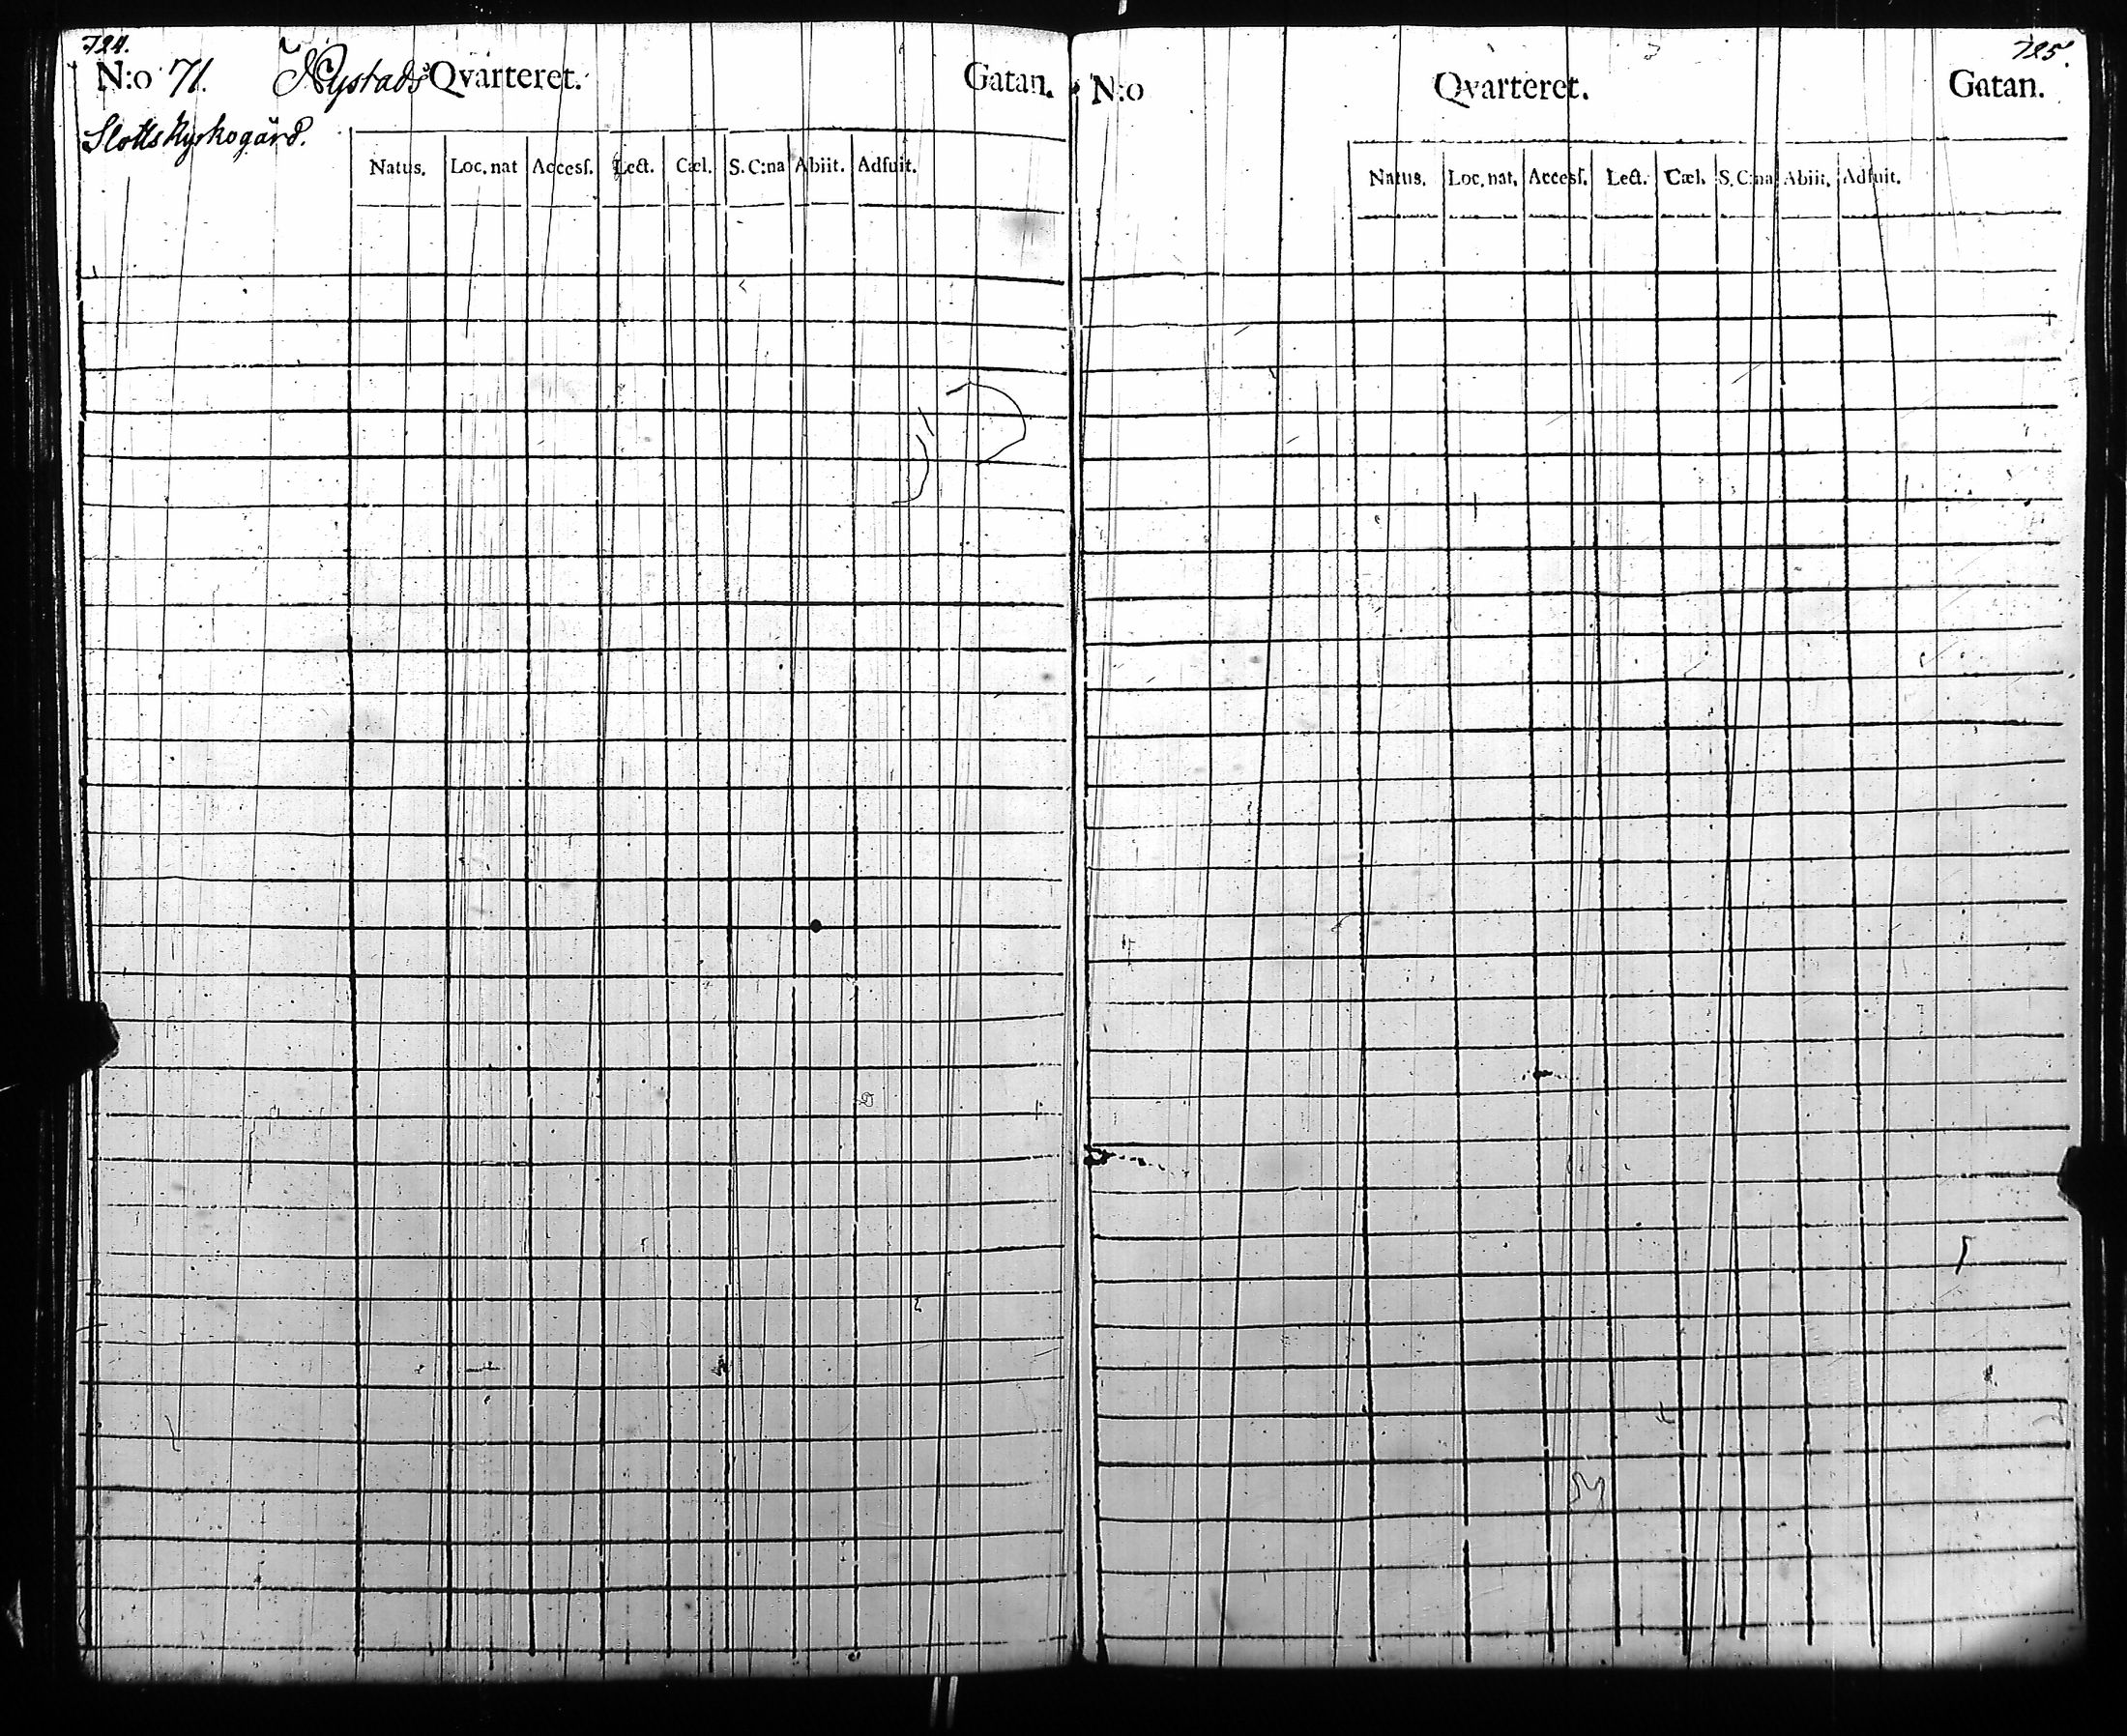 724.
N:o 71. Nystads Qvarteret. Gatan.
Slotts Kyrkogård.
Natus. Loc. nat Accesſ. Lect. Cæl. S. C:na Abiit. Adfuit.
725.
N:o Qvarteret. Gatan.
Natus. Loc. nat. Accesſ. Lect. Cæl. S. C:na Abiit. Adfuit.